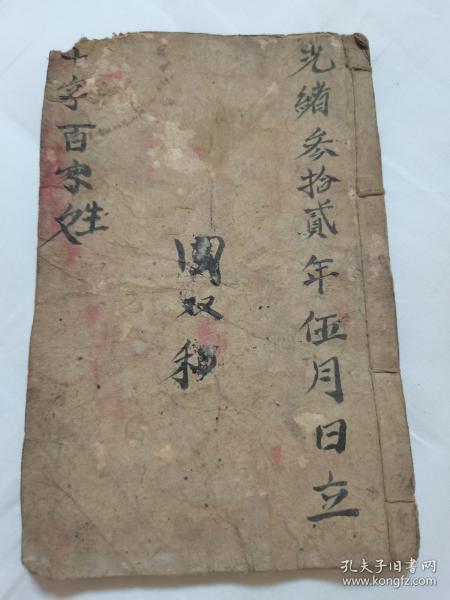 光緒叁拾貳年伍月日立
双和
字百家姓
孔夫子旧书网
www.kongfz.com